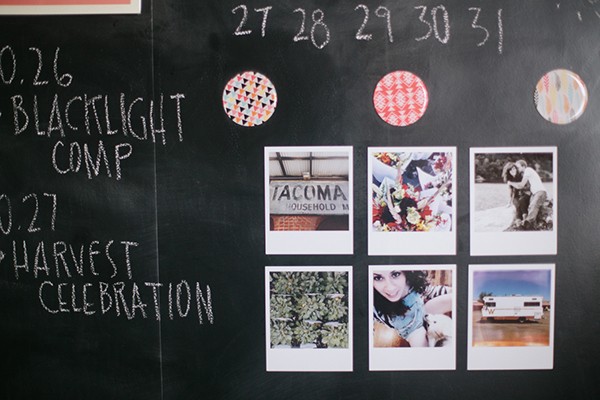 27 28 29 30 31
0.26
BLACKLIGHT
COMP
0.27
HARVEST
CELEBRATION
TACOMA
HOUSEHOLD
W